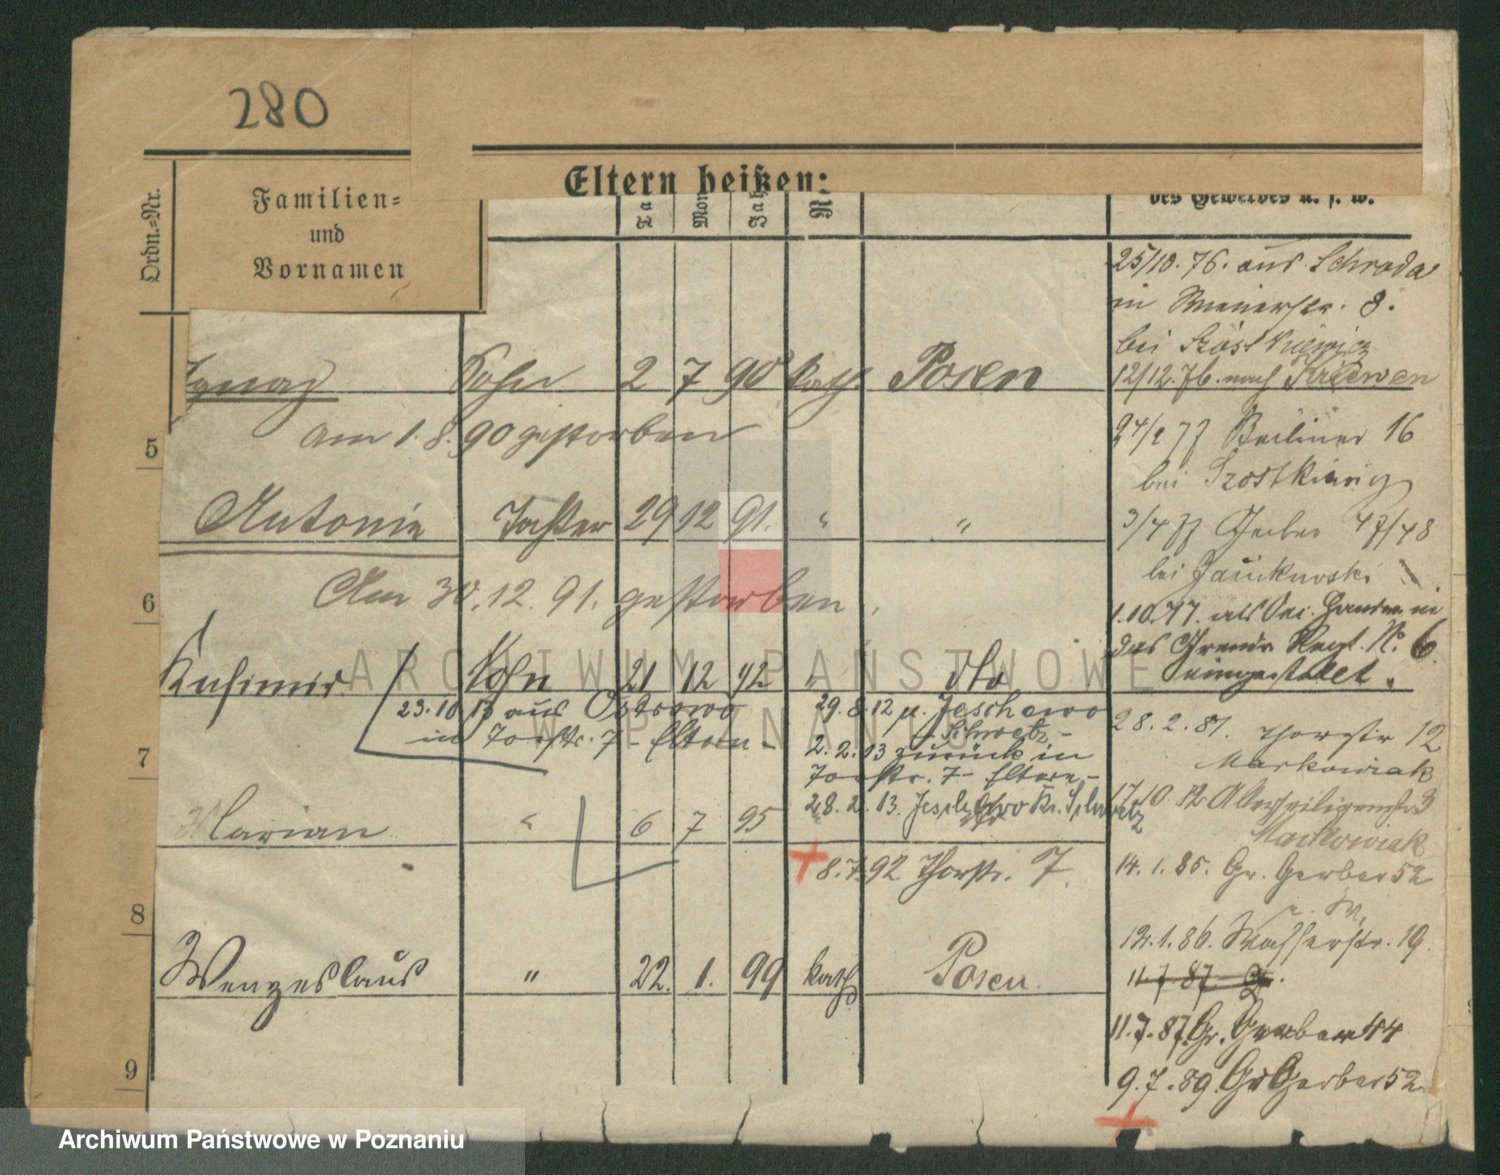 280
Eltern heißen:
Ordn.-Nr.
Familien-
und
Vornamen
des Gewerbes u. s. w.
25/10. 76. aus Schroda
in 8.
bei
12/12. 76. nach Kriewen
Ignaz Sohn 2 7 90 kath Posen
am 1. 8. 90 gestorben
24/2 77 Berliner 16
bei
5
Antonie Tochter 29 12 91. " "
3/4 77 Gerber 47/48
bei
Am 30. 12. 91. gestorben.
6
1.10.77. als
das Grenadr Regt. No. 6.
eingestellt.
Kasimir Sohn 21 12 92 " do
23.10 13 aus Ostrowo
in Torstr. 7 - Eltern -
29. 8. 12 n. Jeschewo
- Schwetz -
2. 2. 13 zurück in
Torstr. 7 - Eltern -
28. 2. 13. Jeschewo Kr. Schwetz
28. 2. 81. Thorstr 12
Markowiak
7
17/10 82 Allerheiligenstr 3
Markowiak
Marian " 6 7 95
8. 7. 92 Thorstr. 7.
14. 1. 85. Gr. Gerber 52
12. 1. 86. Wasserstr. 19.
8
11. 7. 87. Gr.
Wenzeslaus " 22. 1. 99 kath Posen.
11. 7. 87. Gr. Gerber 44
9. 7. 89. Gr Gerber 52
9
ARCHIWUM PAŃSTWOWE
W POZNANIU
Archiwum Państwowe w Poznaniu